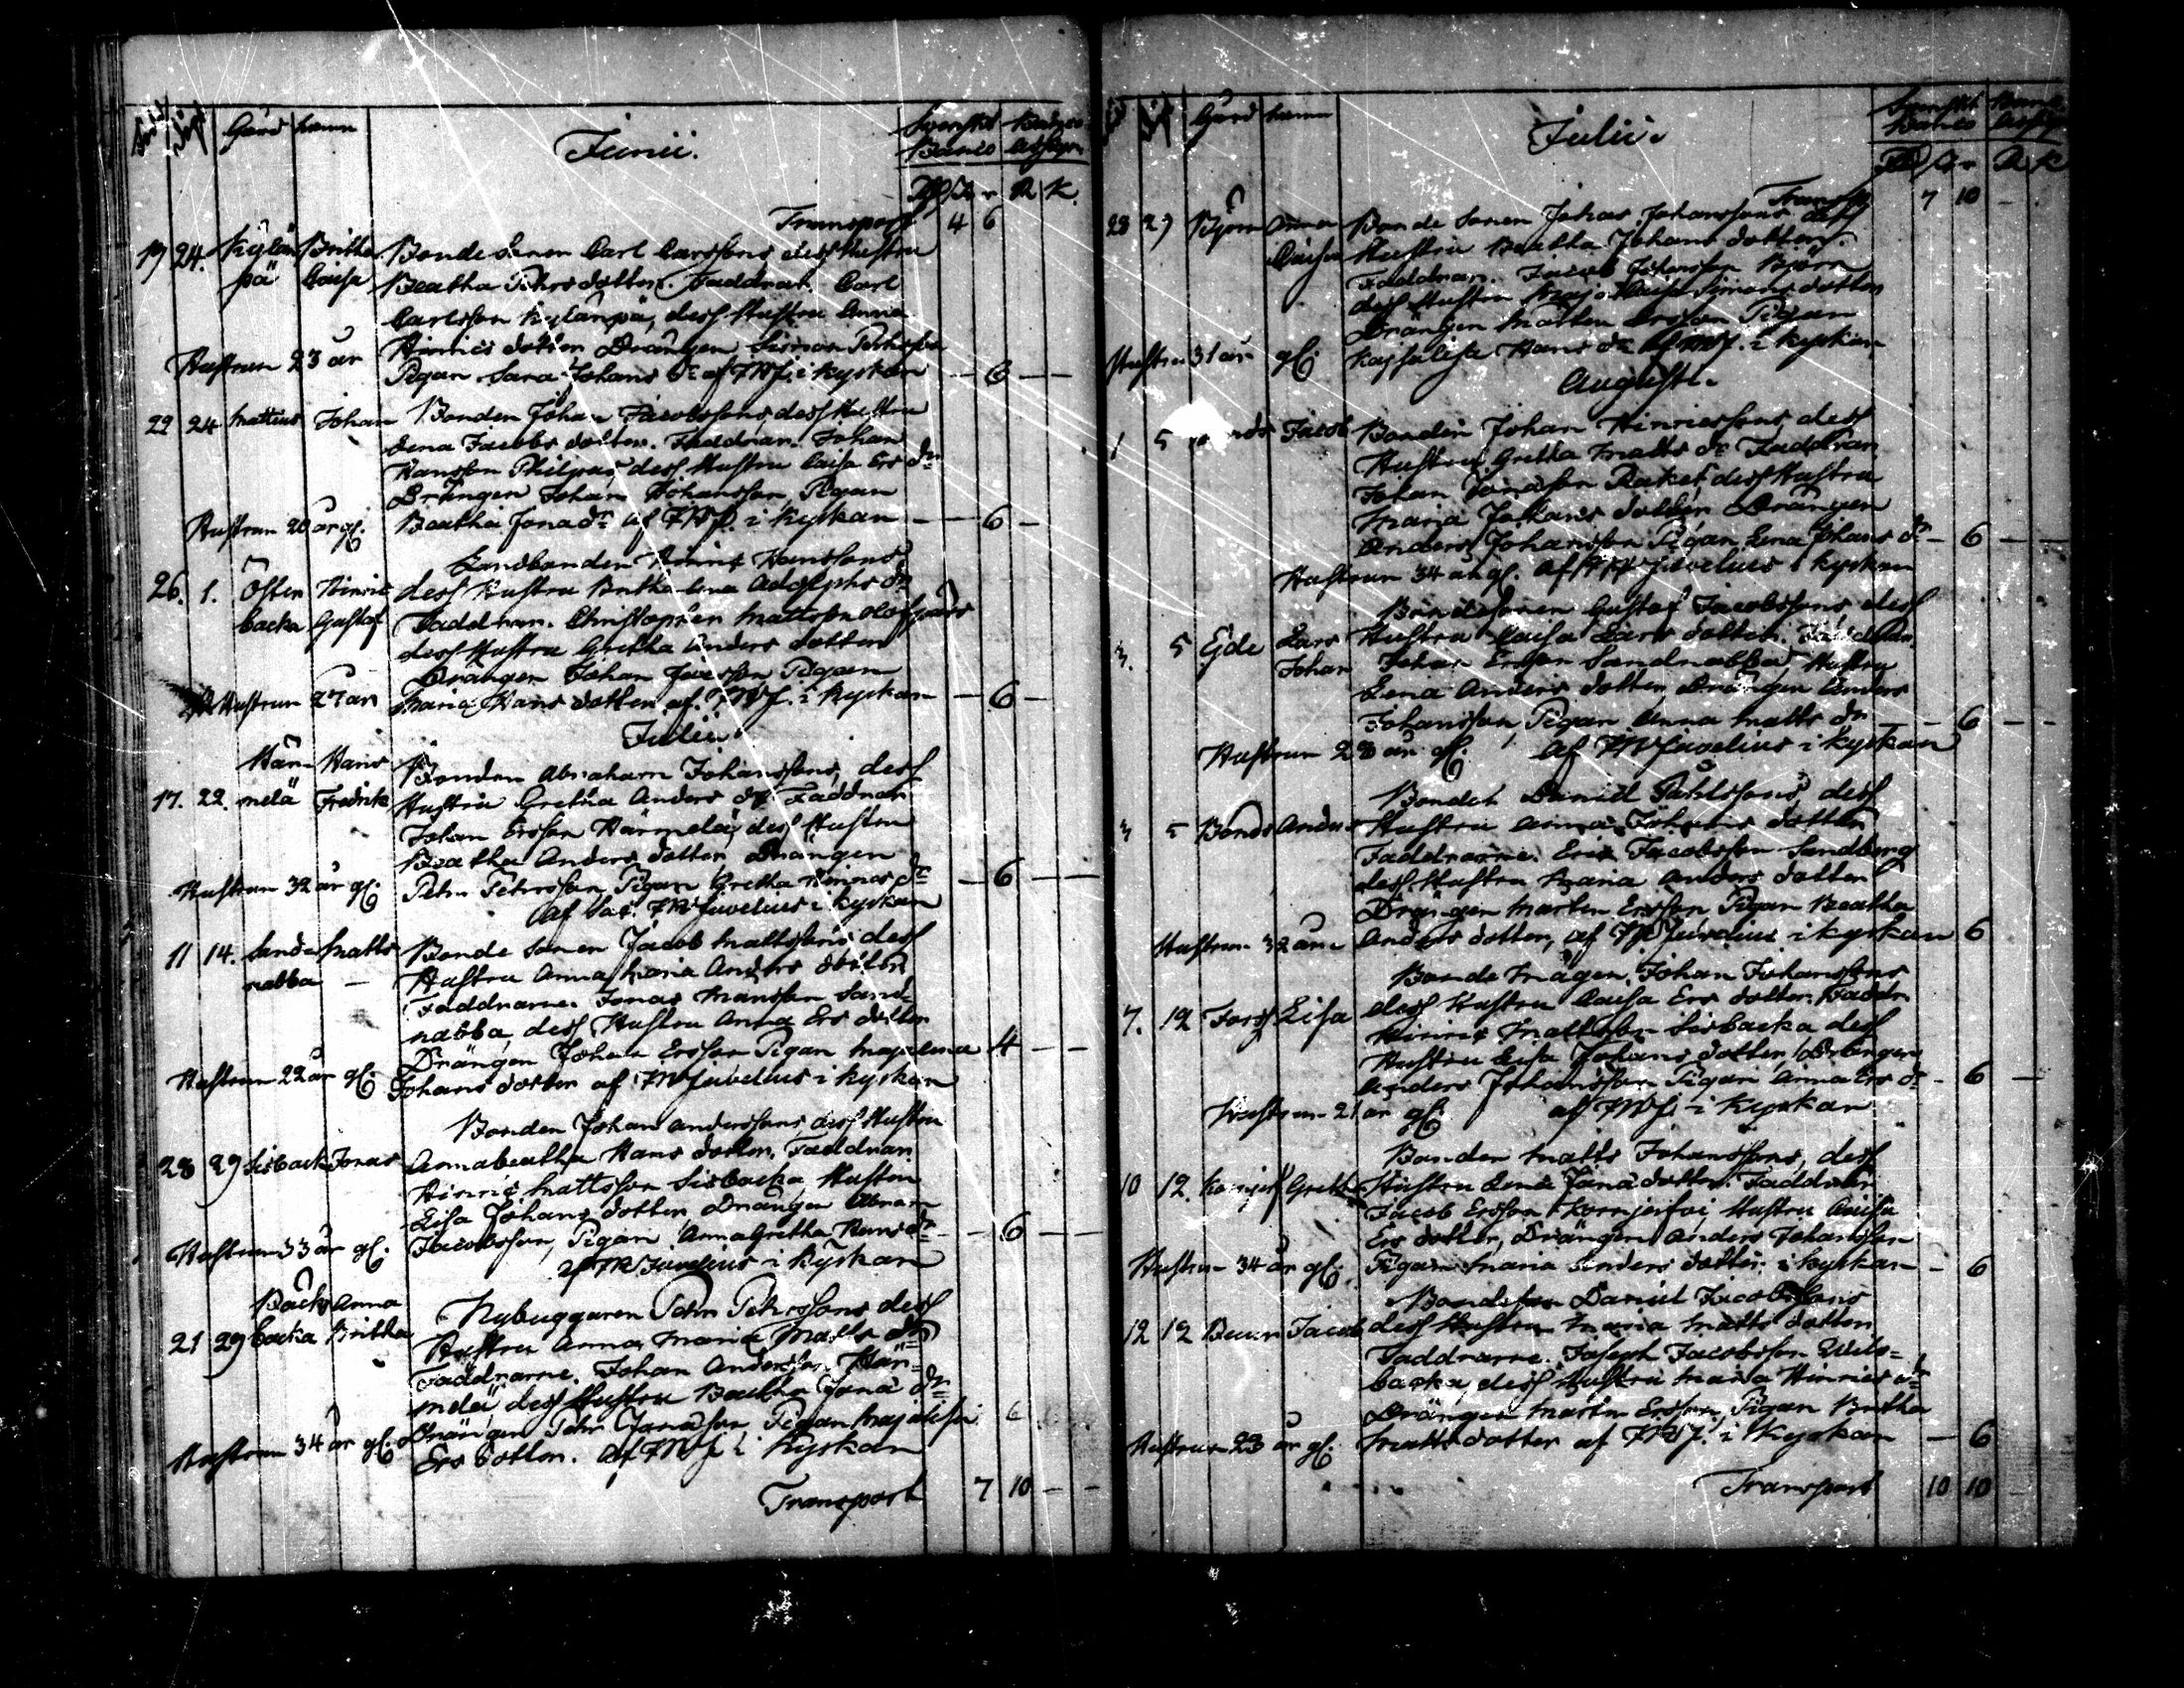 Gård namn Junii. Svenskt Banco
Transport 4 6
19 24. Kylän Britha Bonde Sonen Carl Carssons dess Hustru
pä Caisa Beatha Pehrs dotter. Faddrar. Carl
Carlsson Kylänpä, dess Hustru Anna
Hinrics dotter Drängen Simon Pehrsson
Hustrun 23 år Pigan Sara Johans dr af FWJ. i kyrkan — 6 — —
22 24 Mattus Johan Bonden Johan Jacobssons, dess Hustru
Lena Jacobs dotter. Faddrar. Johan
Hansson Philpas, dess Hustru Caisa Ers dr
Drängen Johan Johansson, Pigan
Hustrun 20 år gl. Beatha Jona dr af FWJ. i kyrkan — 6 —
Landbonden Hinric Hanssons
26. 1. Öster Hinric dess Hustru Britha Lena Adolphs dr
backa Gustaf Faddrar. Christopher Mattsson Olofsgård
dess Hustru Gretha Anders dotter
Drängen Johan Pigan
Hustrun 27 år Maria Hans dotter af FWJ. i kyrkan — 6 —
Julii.
Här- Hans Bonden Abraham Johanssons, dess
17. 22. melä Fredrik Hustru Gretha Anders dr Faddrar
Johan Ersson Härmelä, dess Hustru
Beatha Anders dotter Drängen
Hustrun 32 år gl. Pehr Pehrsson Pigan Gretha Hinrics dr — 6 — —
af Sac. FW Juvelius i kyrkan
11 14. Sand- Matts Bonde Sonen Jacob Mattssons dess
nabba — Hustru Anna Maria Anders dotter
Faddrarne. Jonas Mansson Sand-
nabba, dess Hustru Anna Ers dotter
Drängen Johan Ersson Pigan Majalena 4 — —
Hustrun 22 år gl. Johans dotter af FW Juvelius i kyrkan
Bonden Johan Anderssons dess Hustru
28 29 Sisback Jonas Annabeatha Hans dotter, Faddrar
Hinric Mattsson Sisbacka Hustru
Lisa Johans dotter Drängen Abram
Hustrun 33 år gl. Jacobsson, Pigan Anna Gretha Hans dr — 6 — —
af FW Juvelius i kyrkan
Back Anna Nybyggaren Pehr Pehrssons dess
21 29 backa Britha Hustru Anna Maria Matts dr
Faddrarne. Johan Andersson Här-
melä, dess Hustru Beatha Jona dr
Drängen Pehr Jonasson Pigan Majalisa 6
Hustrun 34 år gl. Ers dotter. af FWJ i Kyrkan
Transport 7 10 — —
Gård namn Julii. Svenskt Banco
Transp 7 10 —
28 29 Björn Anna Bonde Sonen Johan Johanssons dess
Caisa Hustru Beatha Johans dotter.
Faddrar. Jacob Johansson Björn
dess Hustru Maja Caisa Simons dotter
Drängen Morten Ersson Pigan
Hustrun 31 år gl. Kajsalisa Hans dr af FWJ. i kyrkan
Augusti.
1 5 Jacob Bonden Johan Hinricssons dess
Hustru Gretha Matts dr Faddrar
Johan Jonasson Raket dess Hustru
Maria Johans dotter Drängen
Anders Johansson Pigan Lena Johans dr — 6 — —
Hustrun 34 år gl. af FW Juvelius i kyrkan
Bondesonen Gustaf Jacobssons dess
3. 5 Ejde Lars Hustru Caisa Lars dotter. Faddrar.
Johan Johan Ersson Sandnabba Hustru
Lena Anders dotter Drängen Anders
Johansson Pigan Anna Matts dr — 6 — —
Hustrun 28 år gl. af FW Juvelius i kyrkan
Bonden Daniel Påhlssons dess
3 5 Bonds Anders Hustru Anna Johans dotter
Faddrarne. Eric Jacobsson Sandberg
dess Hustru Maria Anders dotter
Drängen Morten Ersson Pigan Beatha
Hustrun 32 år Anders dotter, af FW Juvelius i kyrkan 6
Bonde Mågen Johan Johanssons
7. 12 Forss Lisa dess Hustru Caisa Ers dotter. Faddr
Hinric Mattsson Sisbacka dess
Hustru Lisa Johans dotter Drängen
Anders Johansson Pigan Anna Ers dr — 6 —
Hustrun 21 år gl. af FWJ. i kyrkan
Bonden Matts Johanssons, dess
10 12. Gretha Hustru Lena Jona dotter. Faddrar
Jacob Ersson Hustru Caisa
Ers dotter, Drängen Anders Johansson
Hustrun 34 år gl. Pigan Maria Anders dotter i kyrkan — 6
Daniel Jacobssons
12 12 Jacob dess Hustru Maria Matts dotter
Faddrarne. Joseph Jacobsson Wils-
backa, dess Hustru Maria Hinrics dr
Drängen Morten Ersson, Pigan Britha
Hustrun 23 år gl. Matts dotter af FWJ. i Kyrkan — 6
Transport 10 10 —